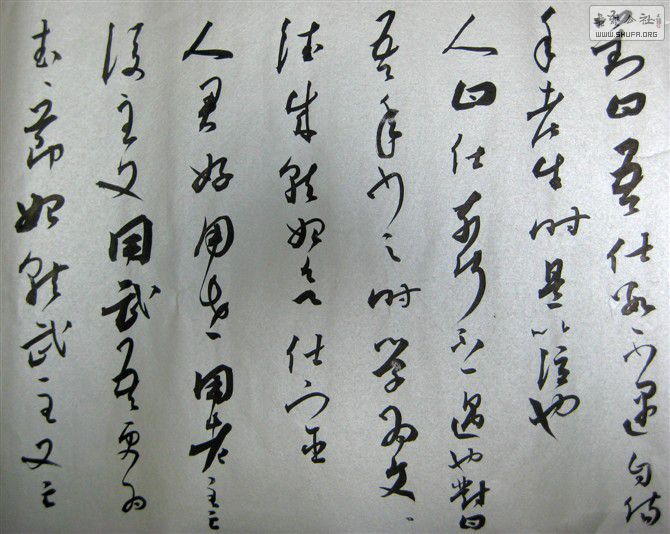 对曰吾仕数不遇自傷
年老失时是以泣也
人曰仕奈何不一遇也對曰
吾年少之时学为文、
德成就始欲仕宦
人君好用老、用老主亡
后主又用武吾更为
武、节始就武主又亡
WWW.SHUFA.ORG